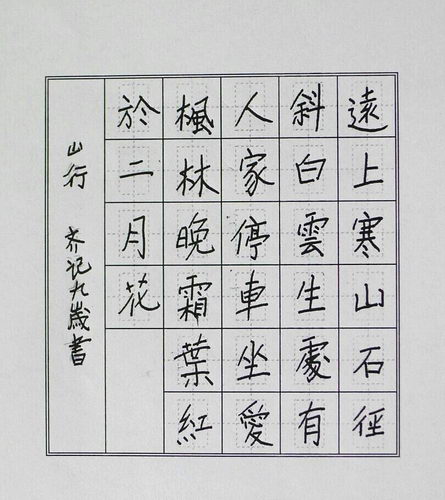 遠上寒山石徑
斜白雲生處有
人家停車坐愛
楓林晚霜葉紅
於二月花
山行 齐记九歲書